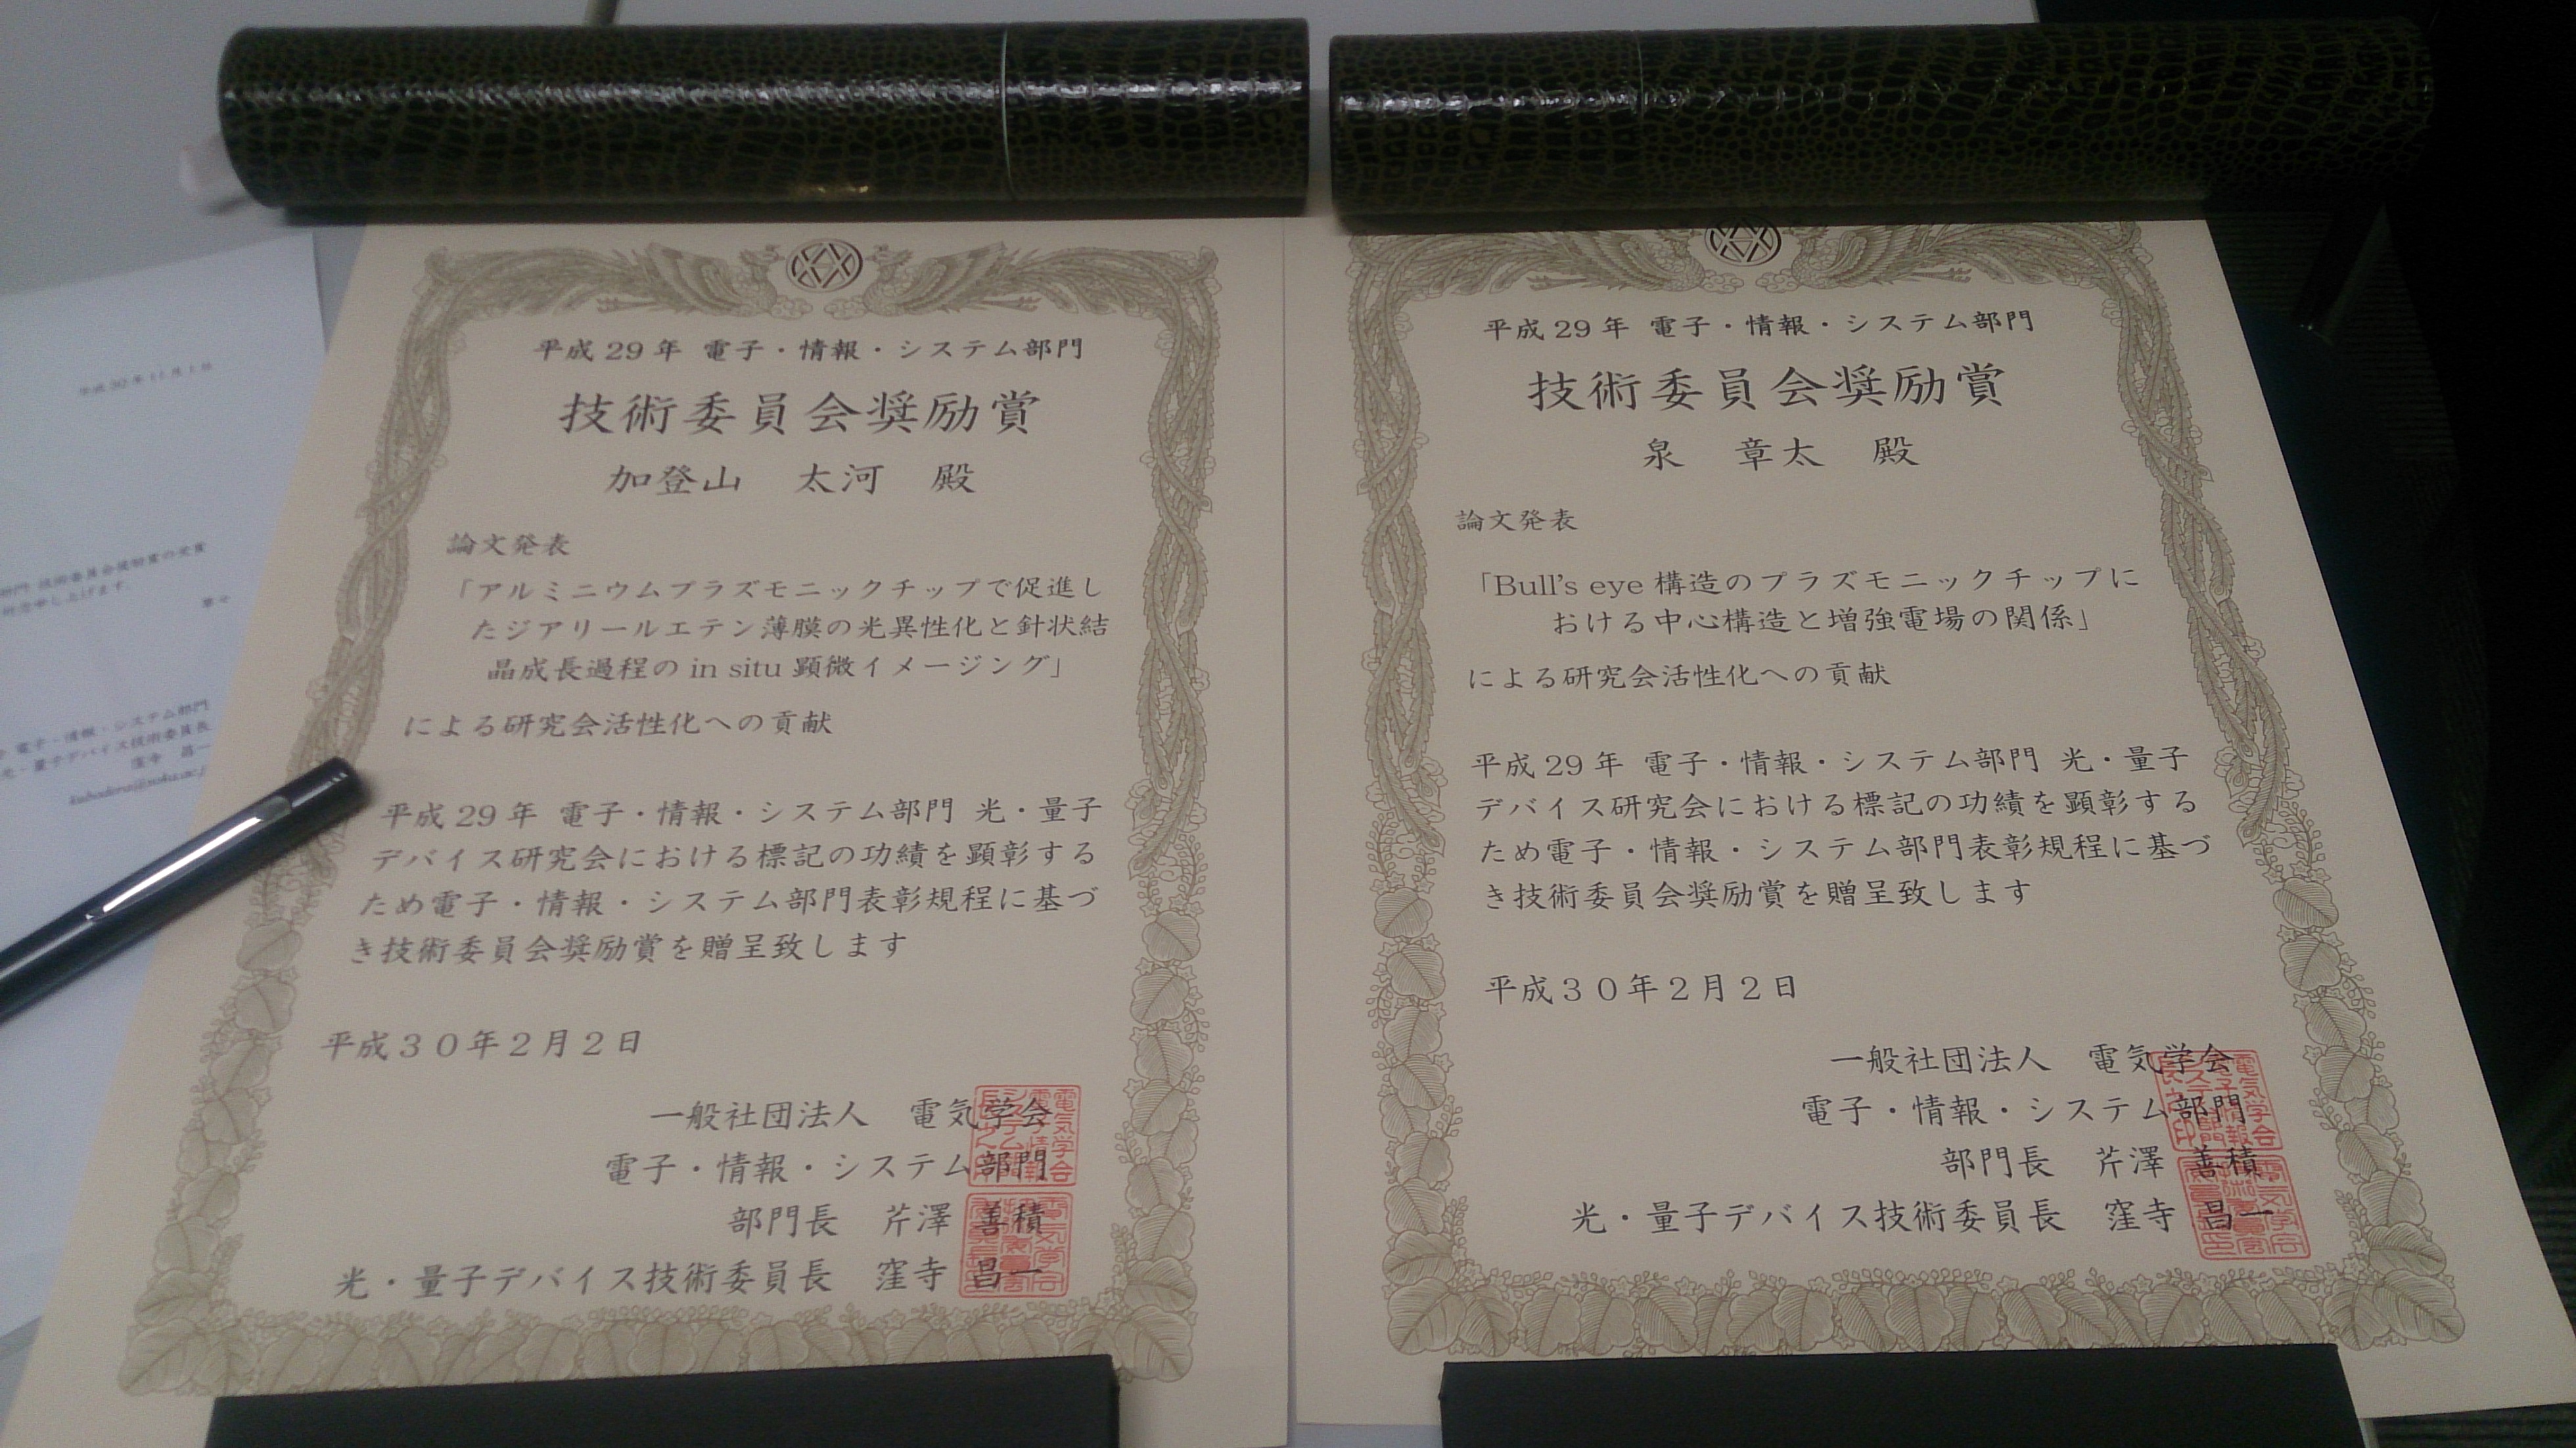 平成30年11月1日
電子・情報・システム部門
光・量子デバイス技術委員長
窪寺 昌一
平成29年 電子・情報・システム部門
技術委員会奨励賞
加登山 太河 殿
論文発表
「アルミニウムプラズモニックチップで促進し
たジアリールエテン薄膜の光異性化と針状結
晶成長過程の in situ 顕微イメージング」
による研究会活性化への貢献
平成29年 電子・情報・システム部門 光・量子
デバイス研究会における標記の功績を顕彰する
ため電子・情報・システム部門表彰規程に基づ
き技術委員会奨励賞を贈呈致します
平成30年2月2日
一般社団法人 電気学会
電子・情報・システム部門
部門長 芹澤 善積
光・量子デバイス技術委員長 窪寺 昌一
平成29年 電子・情報・システム部門
技術委員会奨励賞
泉 章太 殿
論文発表
「Bull's eye 構造のプラズモニックチップに
おける中心構造と増強電場の関係」
による研究会活性化への貢献
平成29年 電子・情報・システム部門 光・量子
デバイス研究会における標記の功績を顕彰する
ため電子・情報・システム部門表彰規程に基づ
き技術委員会奨励賞を贈呈致します
平成30年2月2日
一般社団法人 電気学会
電子・情報・システム部門
部門長 芹澤 善積
光・量子デバイス技術委員長 窪寺 昌一